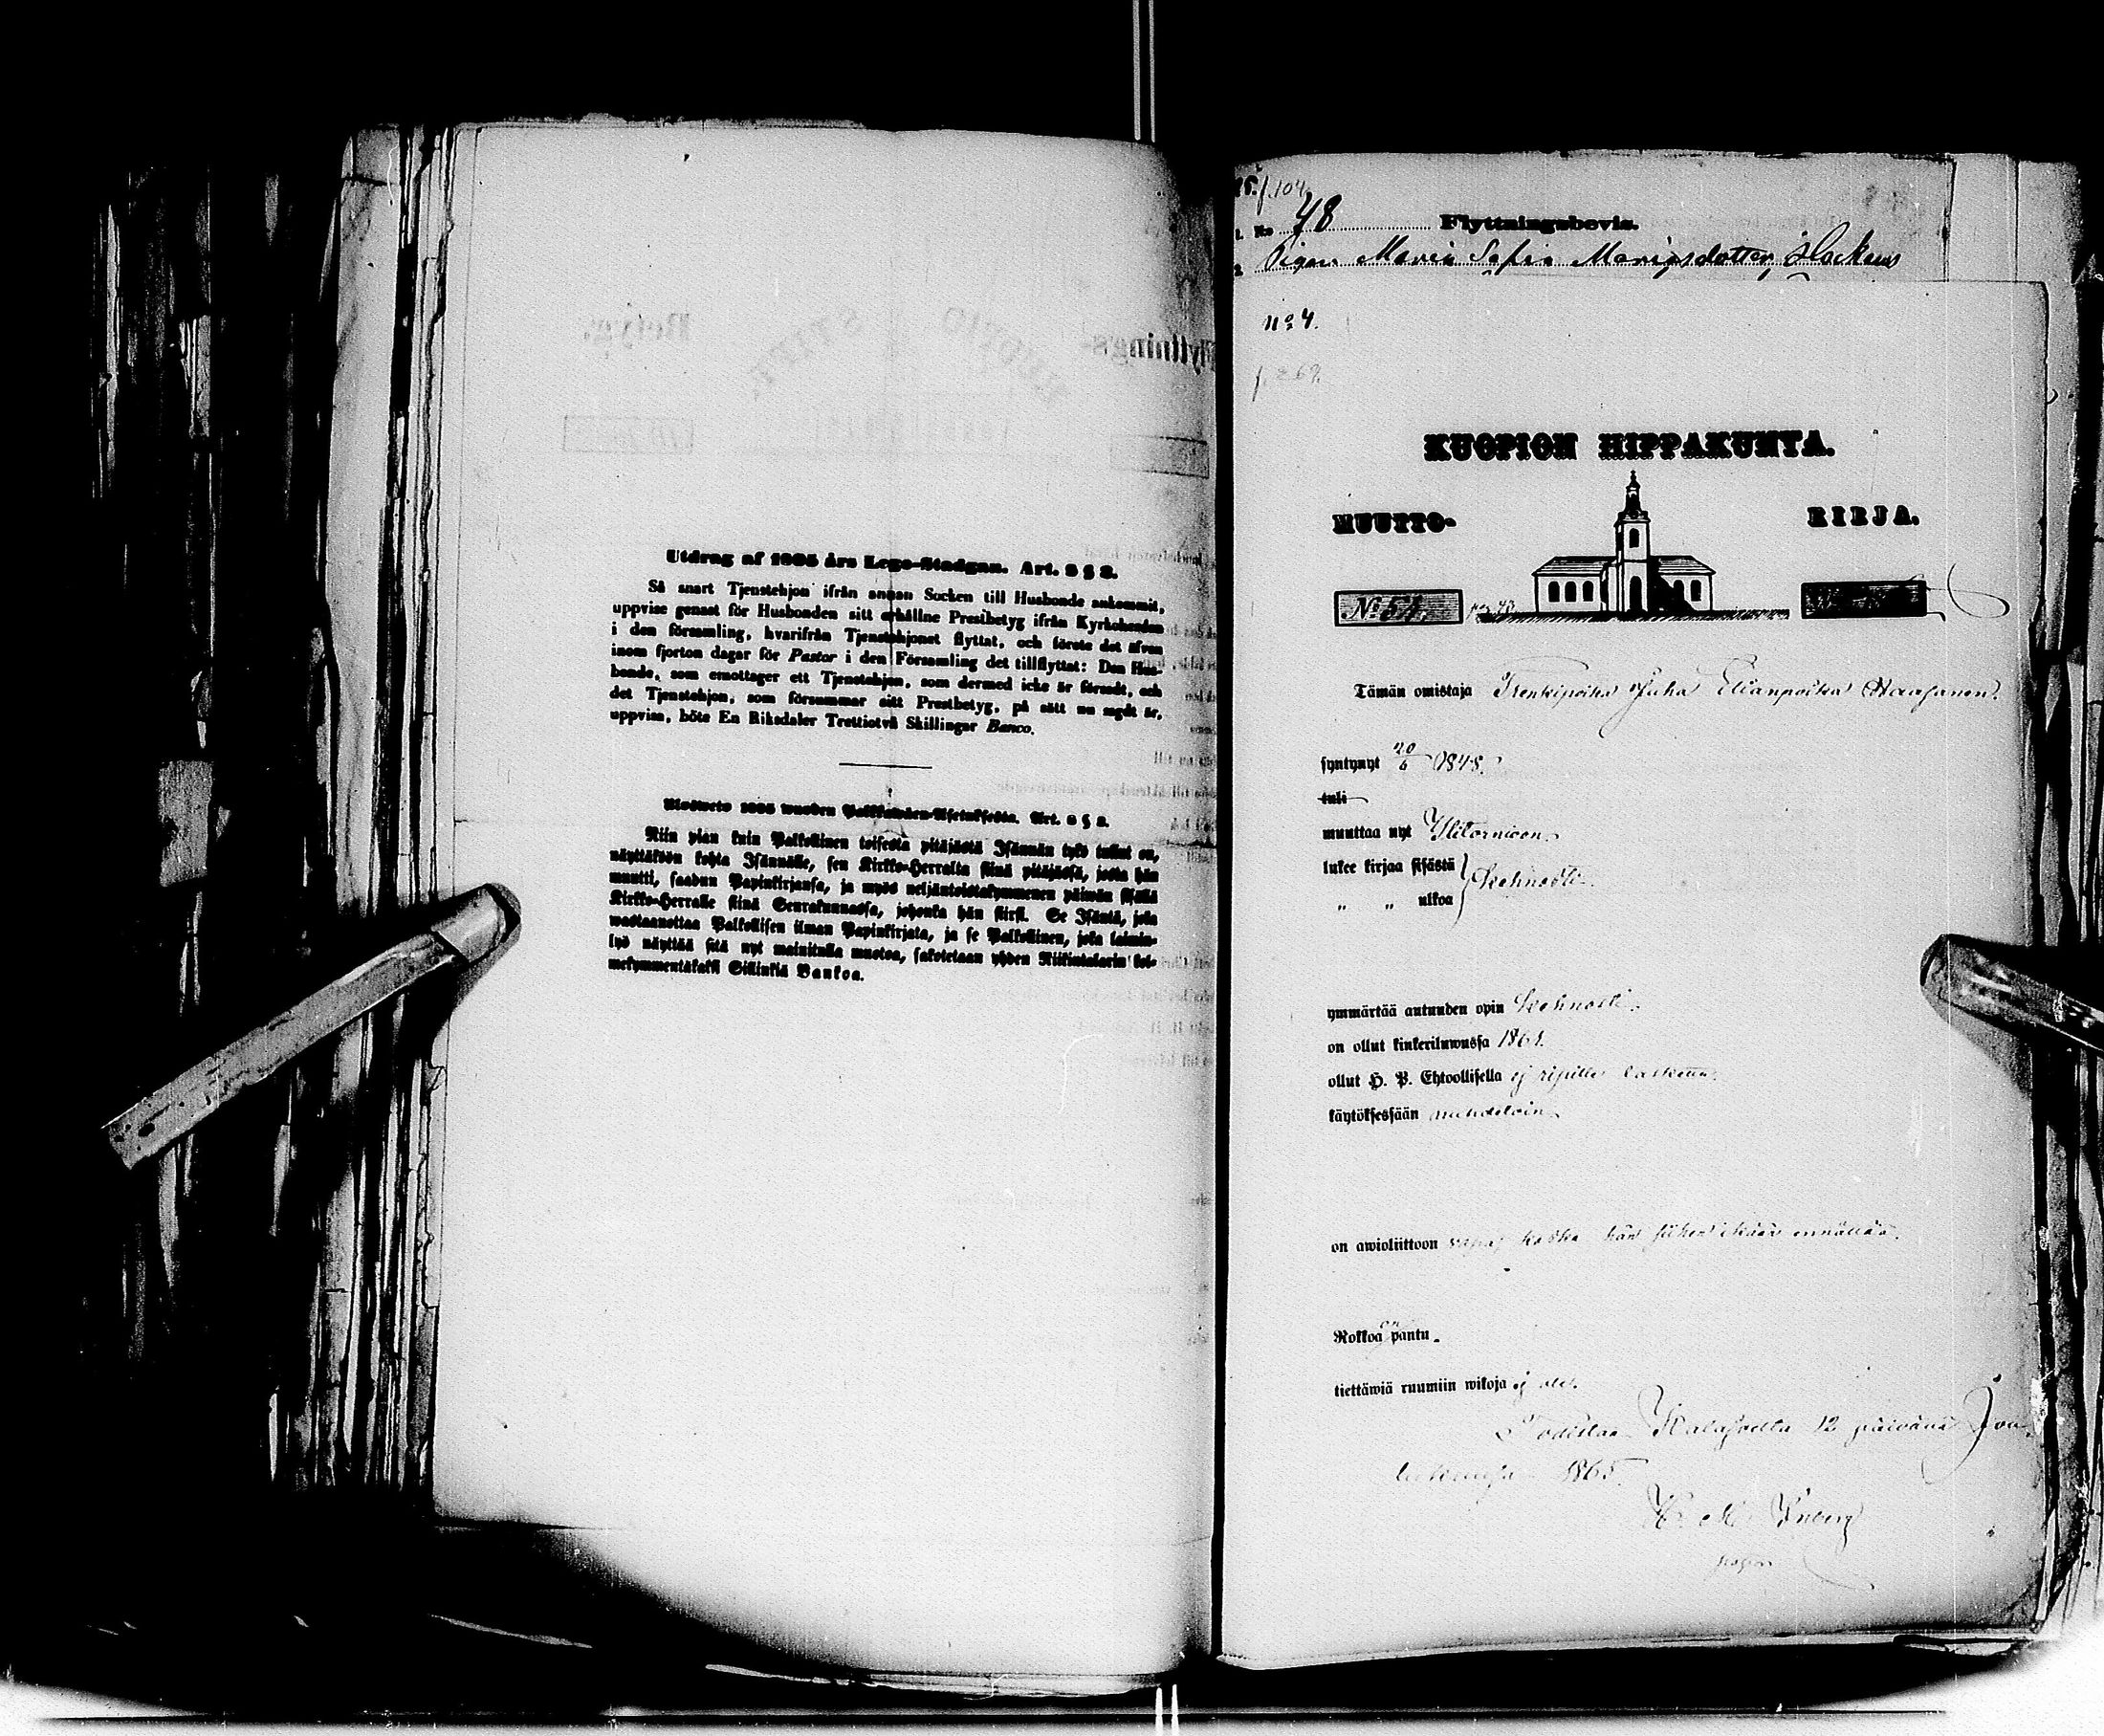 Utdrag af 1805 års Lego-Stadgan. Art. 2 § 2.
Så snart Tjenstehjon ifrån annan Socken till Husbonde ankommit,
uppvise genast för Husbonden sitt erhållne Prestbetyg ifrån Kyrkoherden
i den församling, hvarifrån Tjenstehjonet flyttat, och förete det äfven
inom fjorton dagar för Pastor i den Församling det tillflyttat: Den Hus-
bonde, som emottager ett Tjenstehjon, som dermed icke är försedt, och
det Tjenstehjon, som försummar sitt Prestbetyg, på sätt nu sagdt är,
uppvisa, böte En Riksdaler Trettiotvå Skillingar Banco.
Ulosweto 1805 wuoden Palkkawäen-Asetuksesta. Art. 2 § 2.
Niin pian kuin Palkollinen toisesta pitäjästä Isännän tykö tullut on,
näyttäköön kohta Isännälle, sen Kirkko-Herralta siinä pitäjässä, josta hän
muutti, saadun Papinkirjansa, ja myös neljäntoistakymmenen päiwän sisällä
Kirkko-Herralle siinä Seurakunnassa, johonka hän siirsi. Se Isäntä, joka
wastaanottaa Palkollisen ilman Papinkirjata, ja se Palkollinen, joka laimin-
lyö näyttää sitä nyt mainitulla muotoa, sakotetaan yhden Riikintalarin kol-
mekymmentäkaksi Sillinkiä Bankoa.
f. 104
1. No 78 Flyttningsbevis.
2. Pigan Maria Sofia Mariasdotter
No 4.
f. 269.
KUOPION HIPPAKUNTA.
MUUTTO- KIRJA.
No 51.
Tämän omistaja Trenkipoika Juha Elianpoika
syntynyt 20/6 1848.
tuli
muuttaa nyt Ylitornioon.
lukee kirjaa sisästä } Kohnosti.
„ „ ulkoa
ymmärtää autuuden opin Kohnosti.
on ollut kinkeriluwussa 1865.
ollut H. P. Ehtoollisella ej ripille laskettu.
käytöksessään nuhdetoin.
on awioliittoon wapaa koska hän siihen ikään ennättää.
Rokkoa on pantu.
tiettäwiä ruumiin wikoja ej ole.
Todistaa Kalajoella 12 päiwänä Jou-
lukuussa 1865.